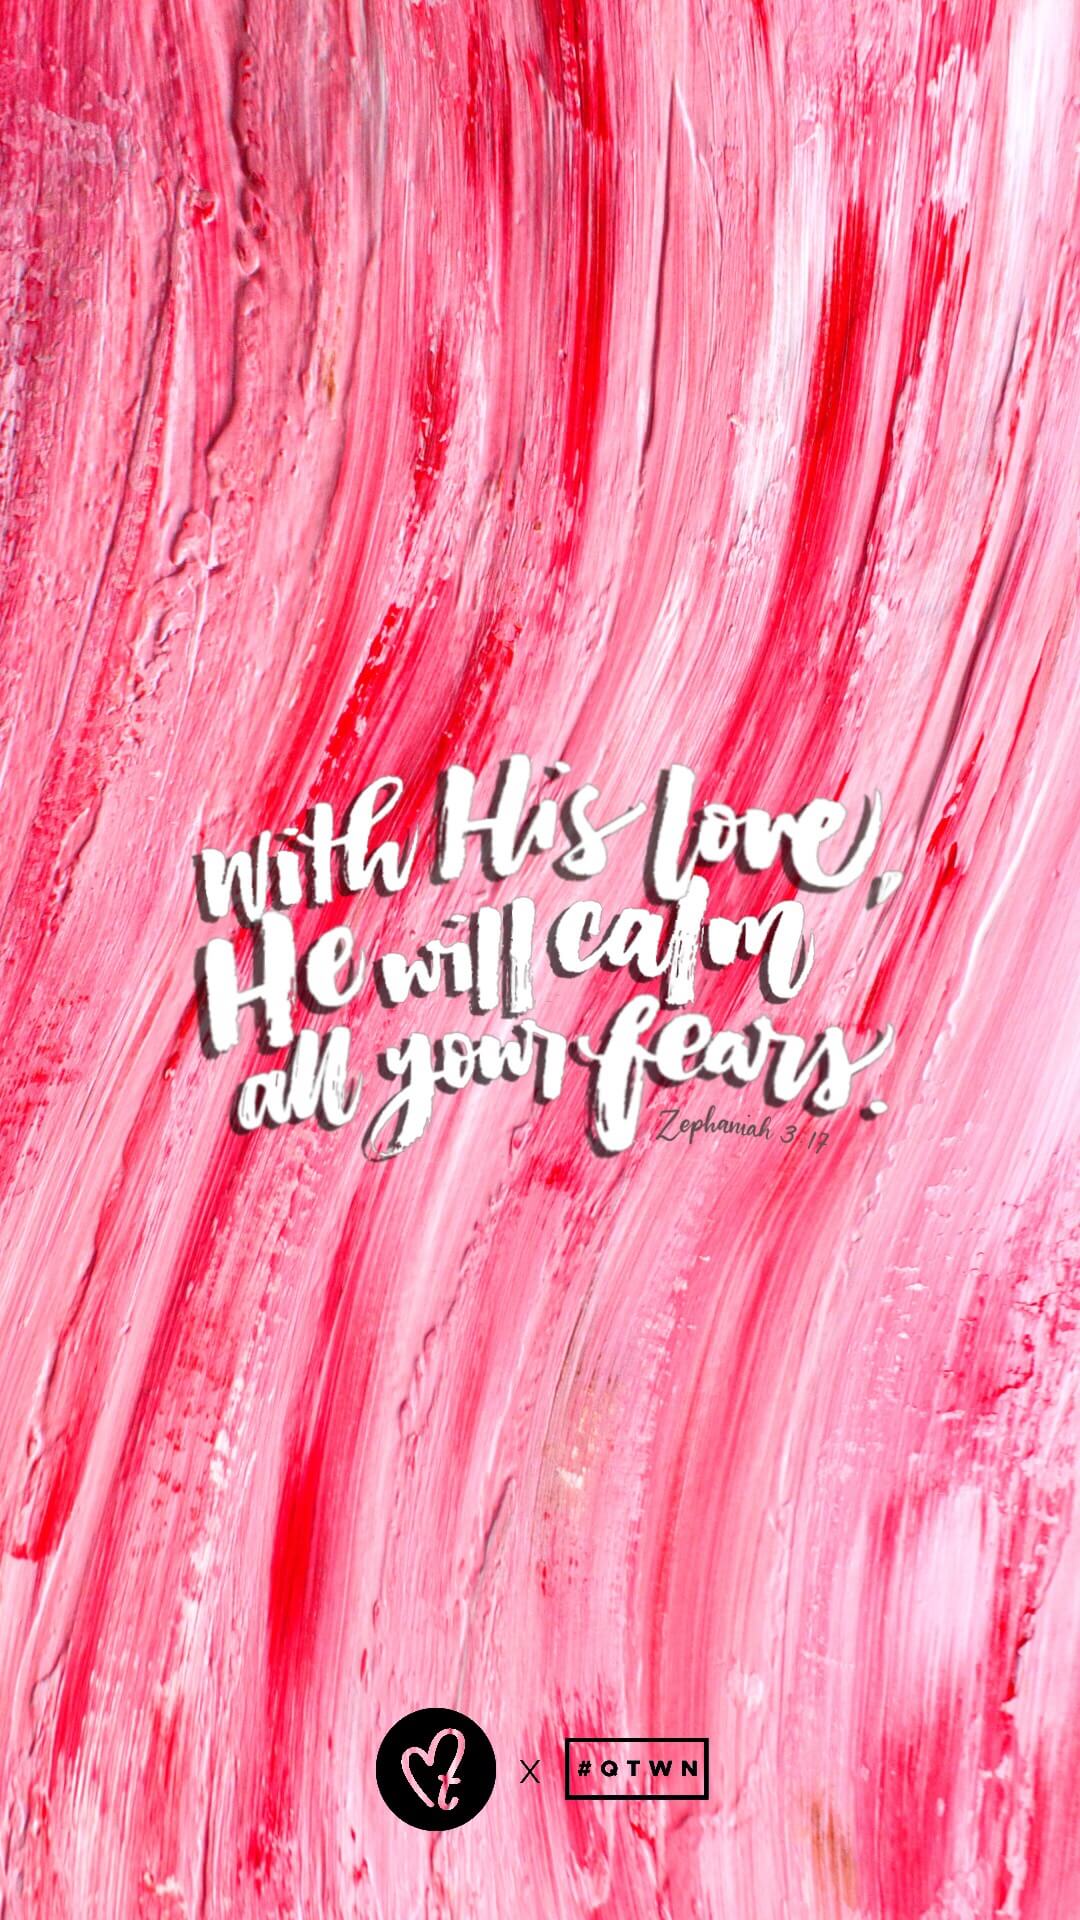 with His love,
He will calm
all your fears.
Zephaniah 3:17
t X #QTWN